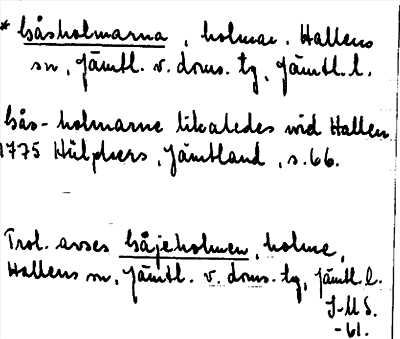 * Gåsholmarna, holmar. Hallens
sn, Jämtl. v. doms. tg, Jämtl. l.
Gås-holmarne likaledes wid Hallen
1775 Hülphers, Jämtland, s. 66.
Trol. avses Gåjeholmen, holme,
Hallens sn, Jämtl. v. doms. tg, Jämtl. l.
J-M S.
-61.